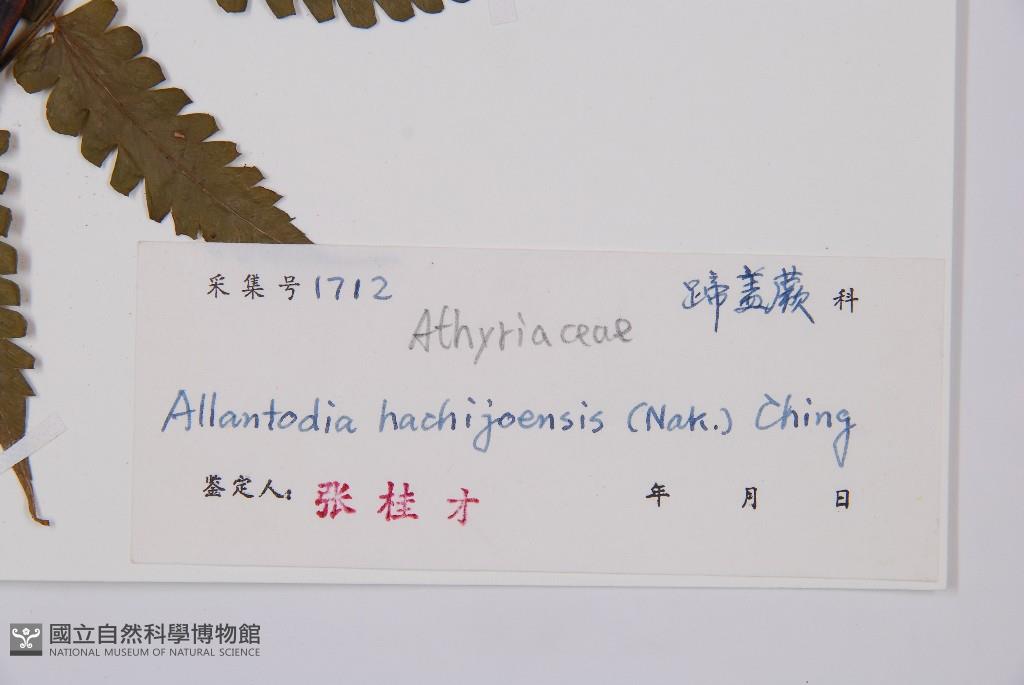 采集号 1712 蹄盖蕨 科
Athyriaceae
Allantodia hachijoensis (Nak.) Ching
鉴定人: 张桂才 年 月 日
國立自然科學博物館
NATIONAL MUSEUM OF NATURAL SCIENCE